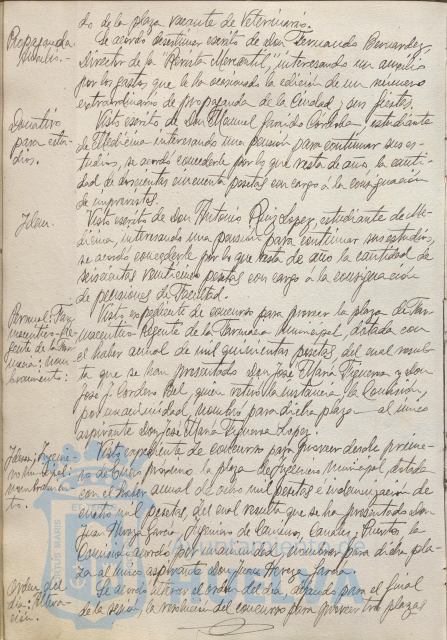 do de la plaza vacante de Veterinario.
Propaganda
Se acordó desestimar escrito de Don Fernando Bermúdez,
Director de la "Revista Mercantil", interesando un auxilio
por los gastos que le ha ocasionado la edición de un número
extraordinario de propaganda de la Ciudad y sus fiestas.
Donativo
para estu-
dios.
Visto escrito de Don Manuel Garrido Córdoba, estudiante
de Medicina interesando una pensión para continuar sus es-
tudios, se acordó concederle por lo que resta de año la canti-
dad de doscientas cincuenta pesetas con cargo a la consignación
de imprevistos.
Idem.
Visto escrito de Don Antonio Ruiz Lopez, estudiante de Me-
dicina, interesando una pensión para continuar sus estudios,
se acordó concederle por lo que resta de año la cantidad de
seiscientas veinticinco pesetas con cargo a la consignación
de pensiones de Facultad.
Personal: Far-
maceutico Re-
gente de la Far-
macia: nom-
bramiento:
Visto expediente de concurso para proveer la plaza de Far-
maceutico Regente de la Farmacia Municipal, dotada con
el haber anual de mil quinientas pesetas del cual resul-
ta que se han presentado Don José María Figueroa y Don
José J. Cordero Bel, quien retiró la instancia, la Comisión,
por unanimidad, nombró para dicha plaza al único
aspirante Don José María Figueroa Lopez.
Idem: Ingenie-
ro Municipal:
nombramien-
to.
Visto expediente de concurso para proveer desde primero
de Enero próximo la plaza de Ingeniero Municipal, dotada
con el haber anual de ocho mil pesetas e indemnización de
cuatro mil pesetas del cual resulta que se ha presentado Don
Juan García, Ingeniero de Caminos, Canales y Puertos, la
Comisión acordó por unanimidad nombrar para dicha pla-
za al único aspirante Don Juan García.
Orden del
día: Altera-
ción.
Se acordó alterar el orden del día, dejando para el final
de la sesión, la resolución del concurso para proveer las plazas